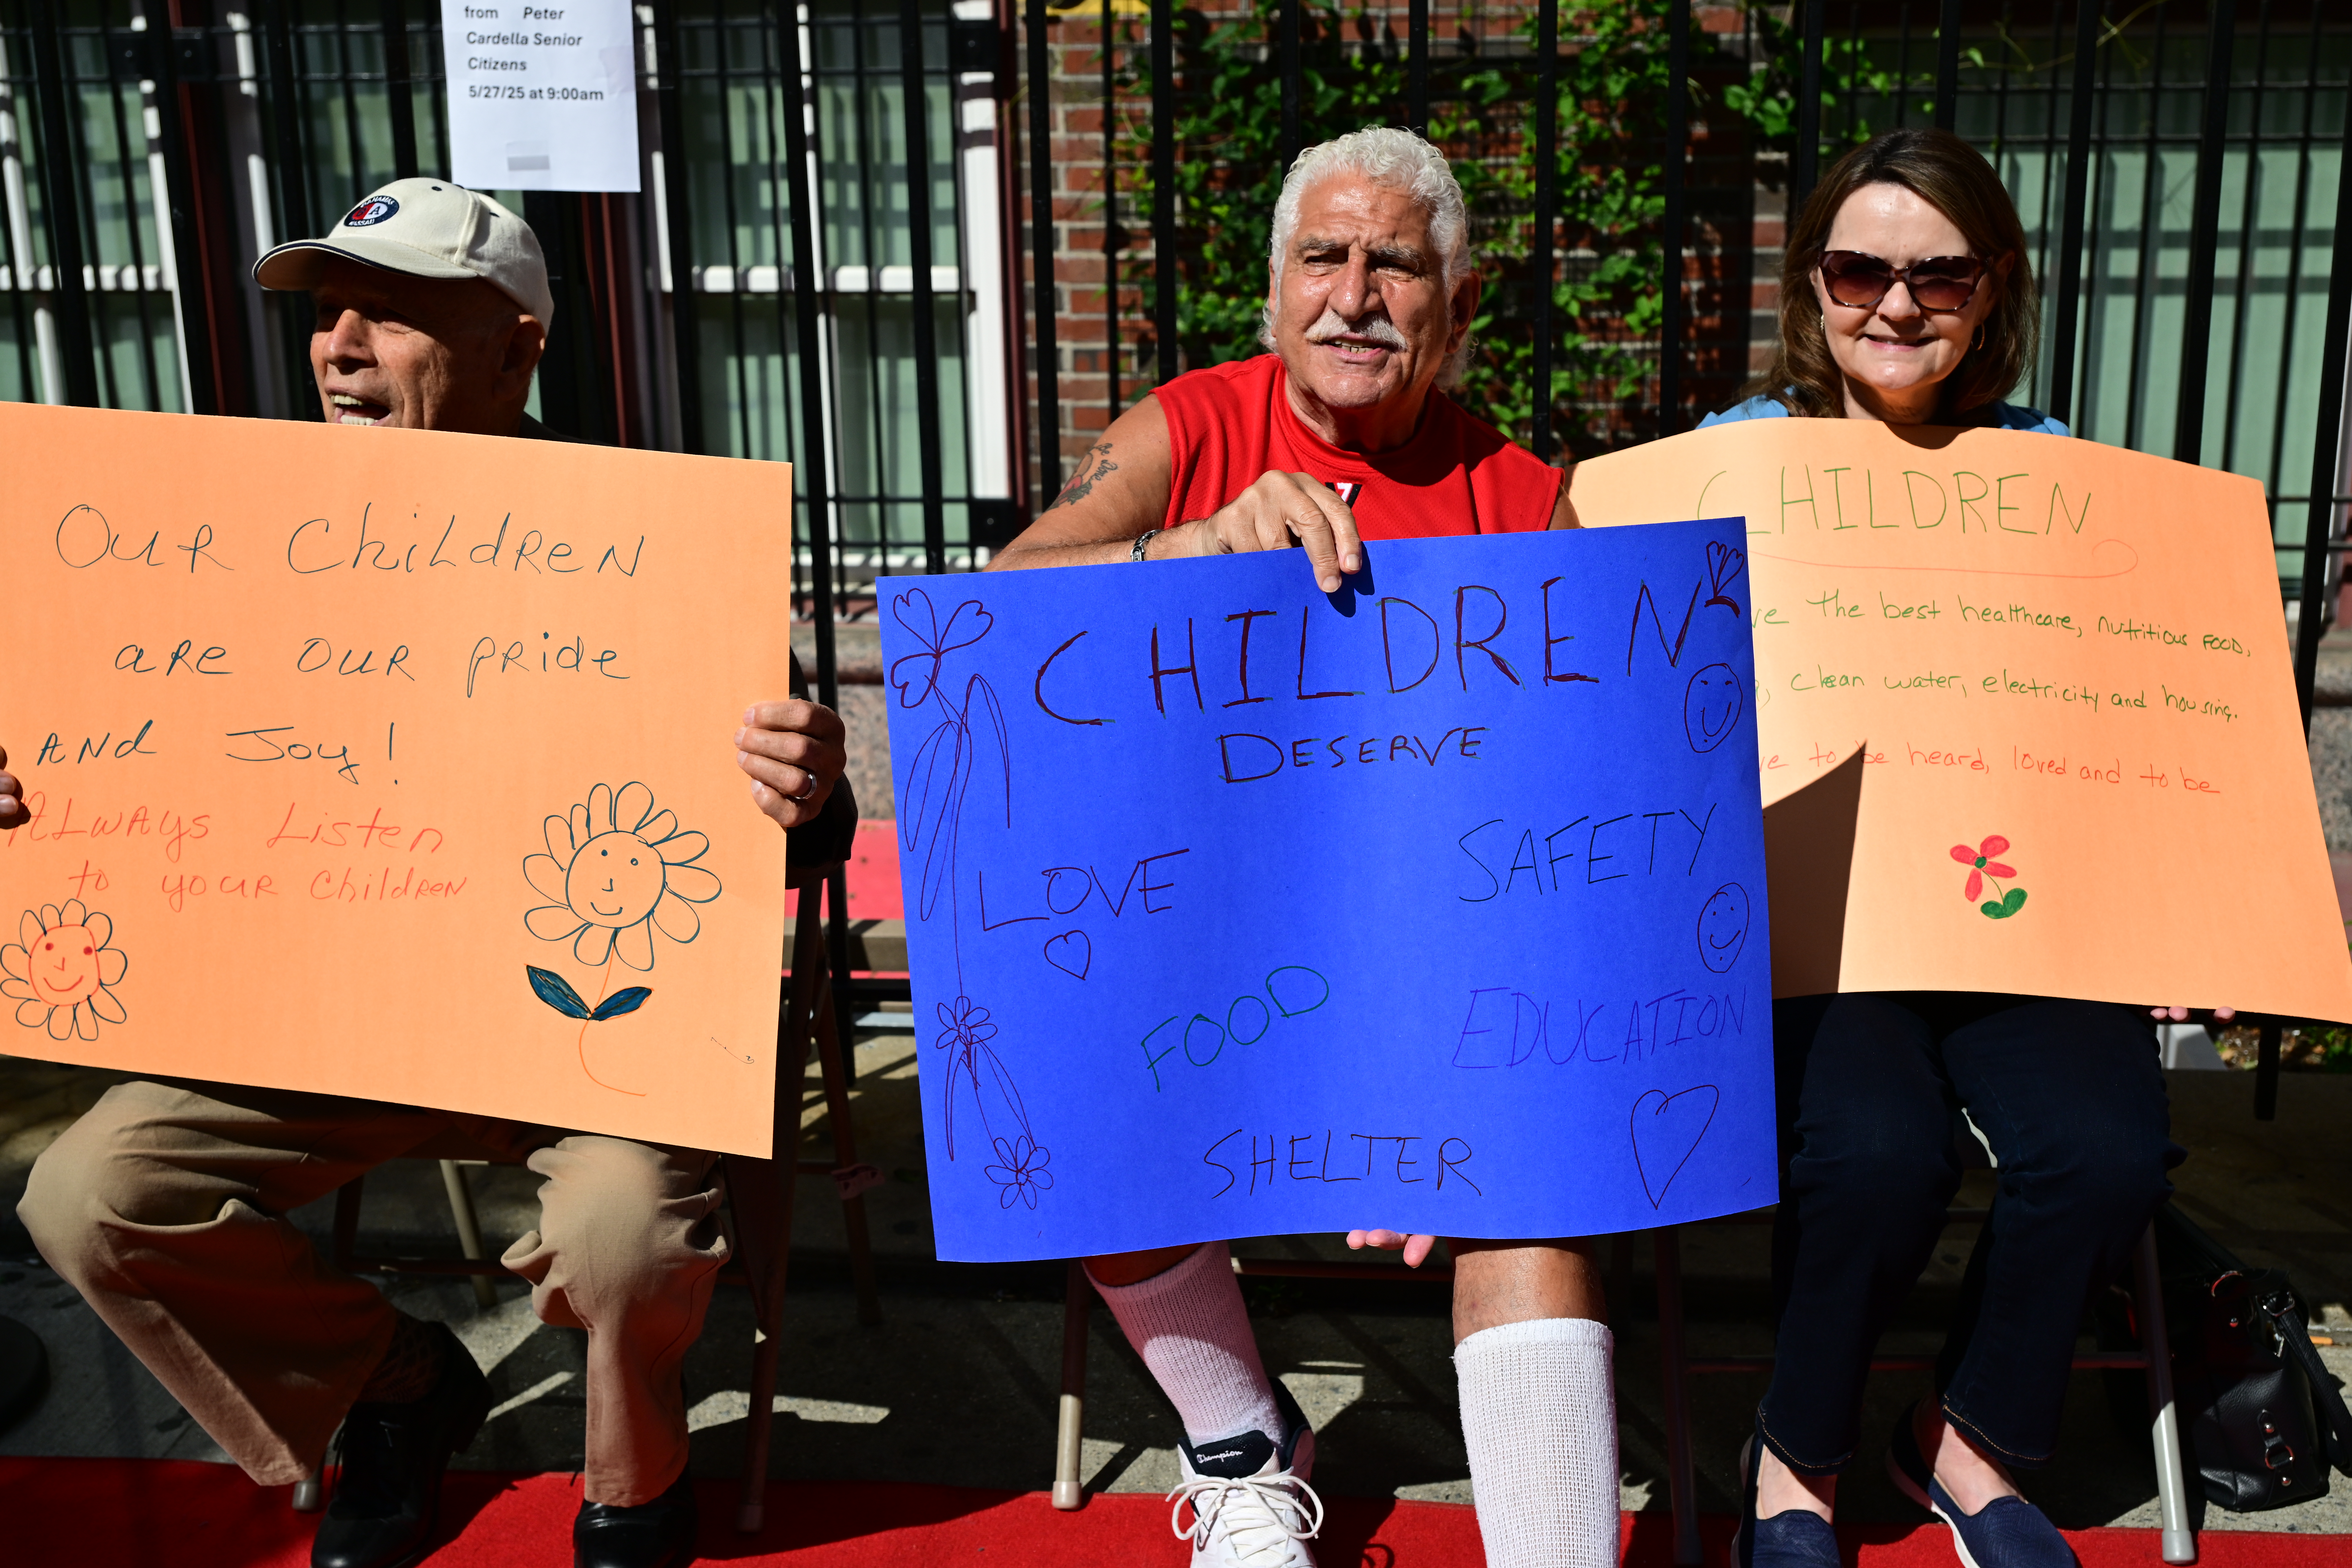 from Peter
Cardella Senior
Citizens
5/27/25 at 9:00am
OUR ChiLdREN
aRe OUR pRide
ANd Joy!
ALwAys Listen
to youR ChildreN
CHILDREN
DESERVE
LOVE
SAFETY
FOOD
EDUCATION
SHELTER
CHILDREN
The best healthcare, nutritious FOOD,
clean water, electricity and housing.
to be heard, loved and to be
Champion